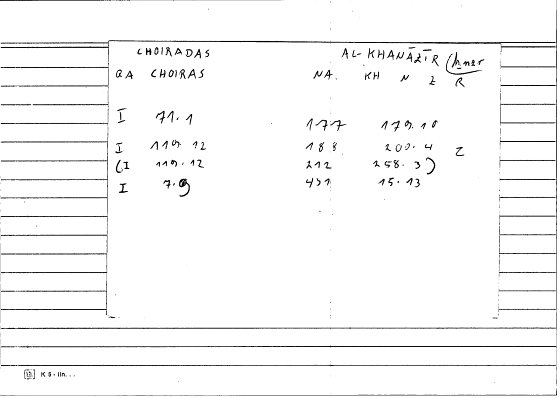 CHOIRADAS AL-KHANĀZĪR
QA CHOIRAS NA. KH N Z R
I 71.1 177 179.10
I 119.12 188 200.4 Z
(I 119.12 212 258.3)
I 7.9 431 15.13
K 6 - lin. . .